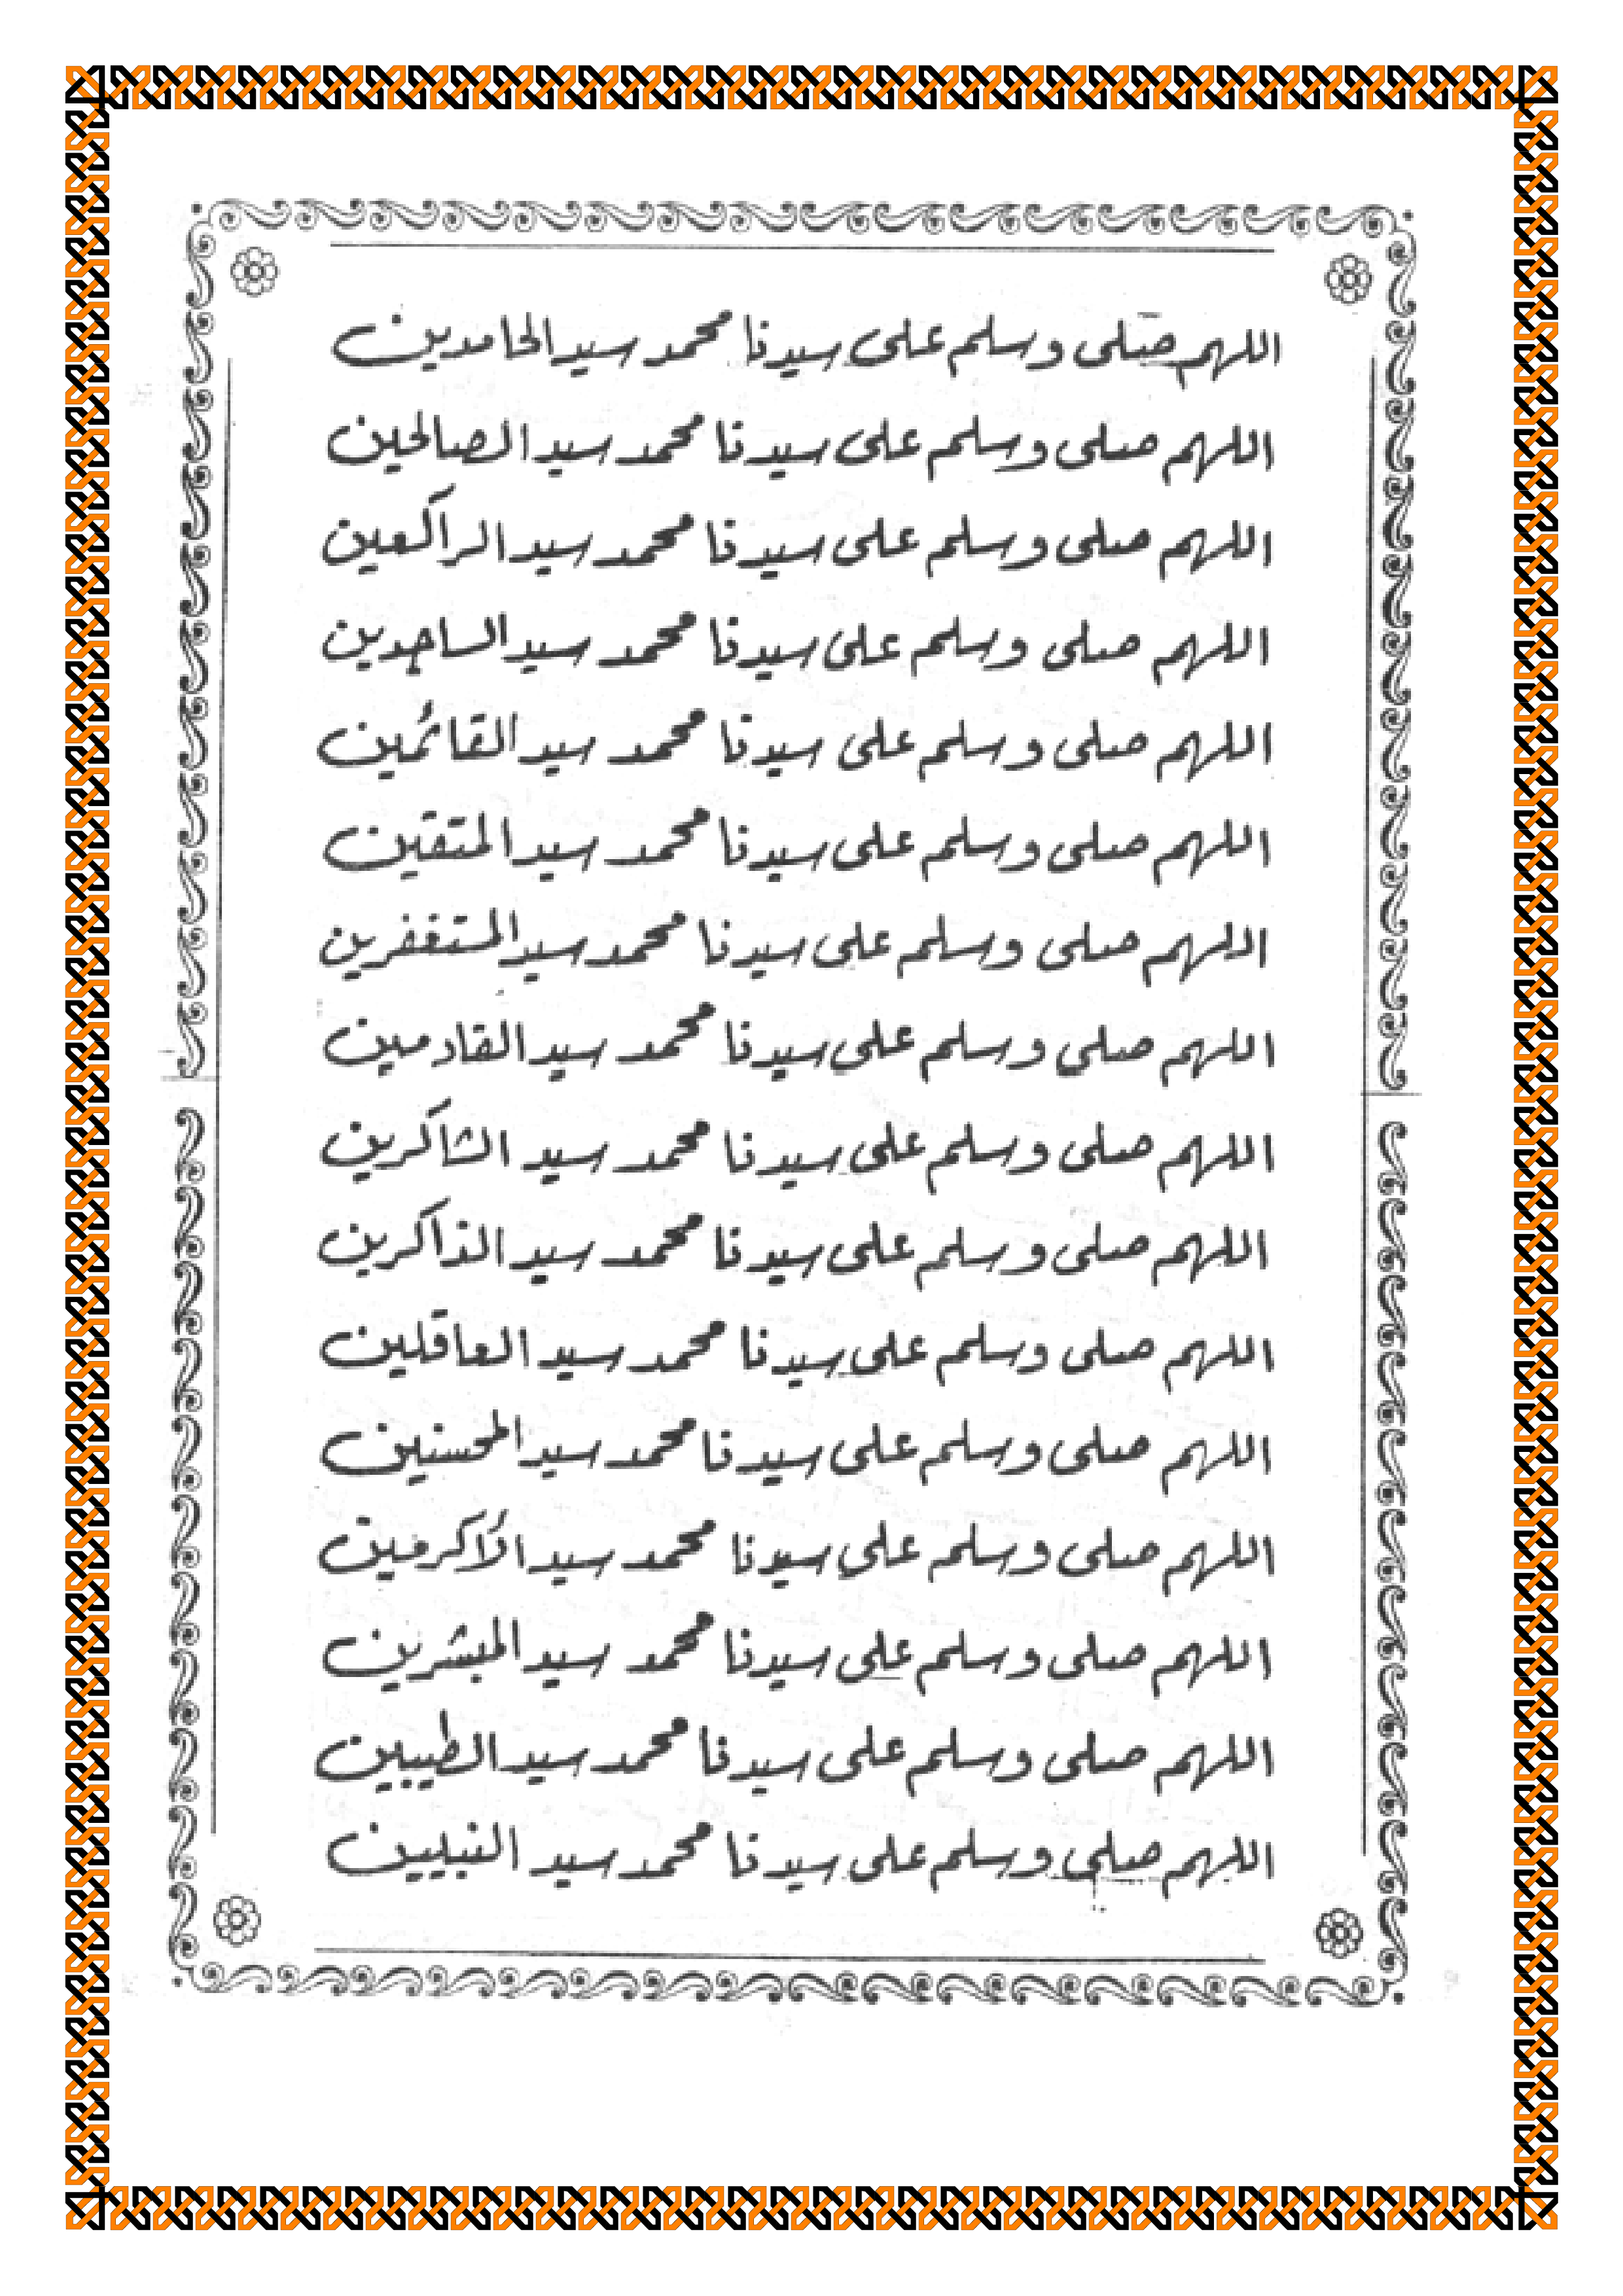 اللهم صلى وسلم على سيدنا محمد سيد الحامدين
اللهم صلى وسلم على سيدنا محمد سيد الصالحين
اللهم صلى وسلم على سيدنا محمد سيد الراكعين
اللهم صلى وسلم على سيدنا محمد سيد الساجدين
اللهم صلى وسلم على سيدنا محمد سيد القائمين
اللهم صلى وسلم على سيدنا محمد سيد المتقين
اللهم صلى وسلم على سيدنا محمد سيد المستغفرين
اللهم صلى وسلم على سيدنا محمد سيد القادمين
اللهم صلى وسلم على سيدنا محمد سيد الشاكرين
اللهم صلى وسلم على سيدنا محمد سيد الذاكرين
اللهم صلى وسلم على سيدنا محمد سيد العاقلين
اللهم صلى وسلم على سيدنا محمد سيد المحسنين
اللهم صلى وسلم على سيدنا محمد سيد الأكرمين
اللهم صلى وسلم على سيدنا محمد سيد المبشرين
اللهم صلى وسلم على سيدنا محمد سيد الطيبين
اللهم صلى وسلم على سيدنا محمد سيد النبيين